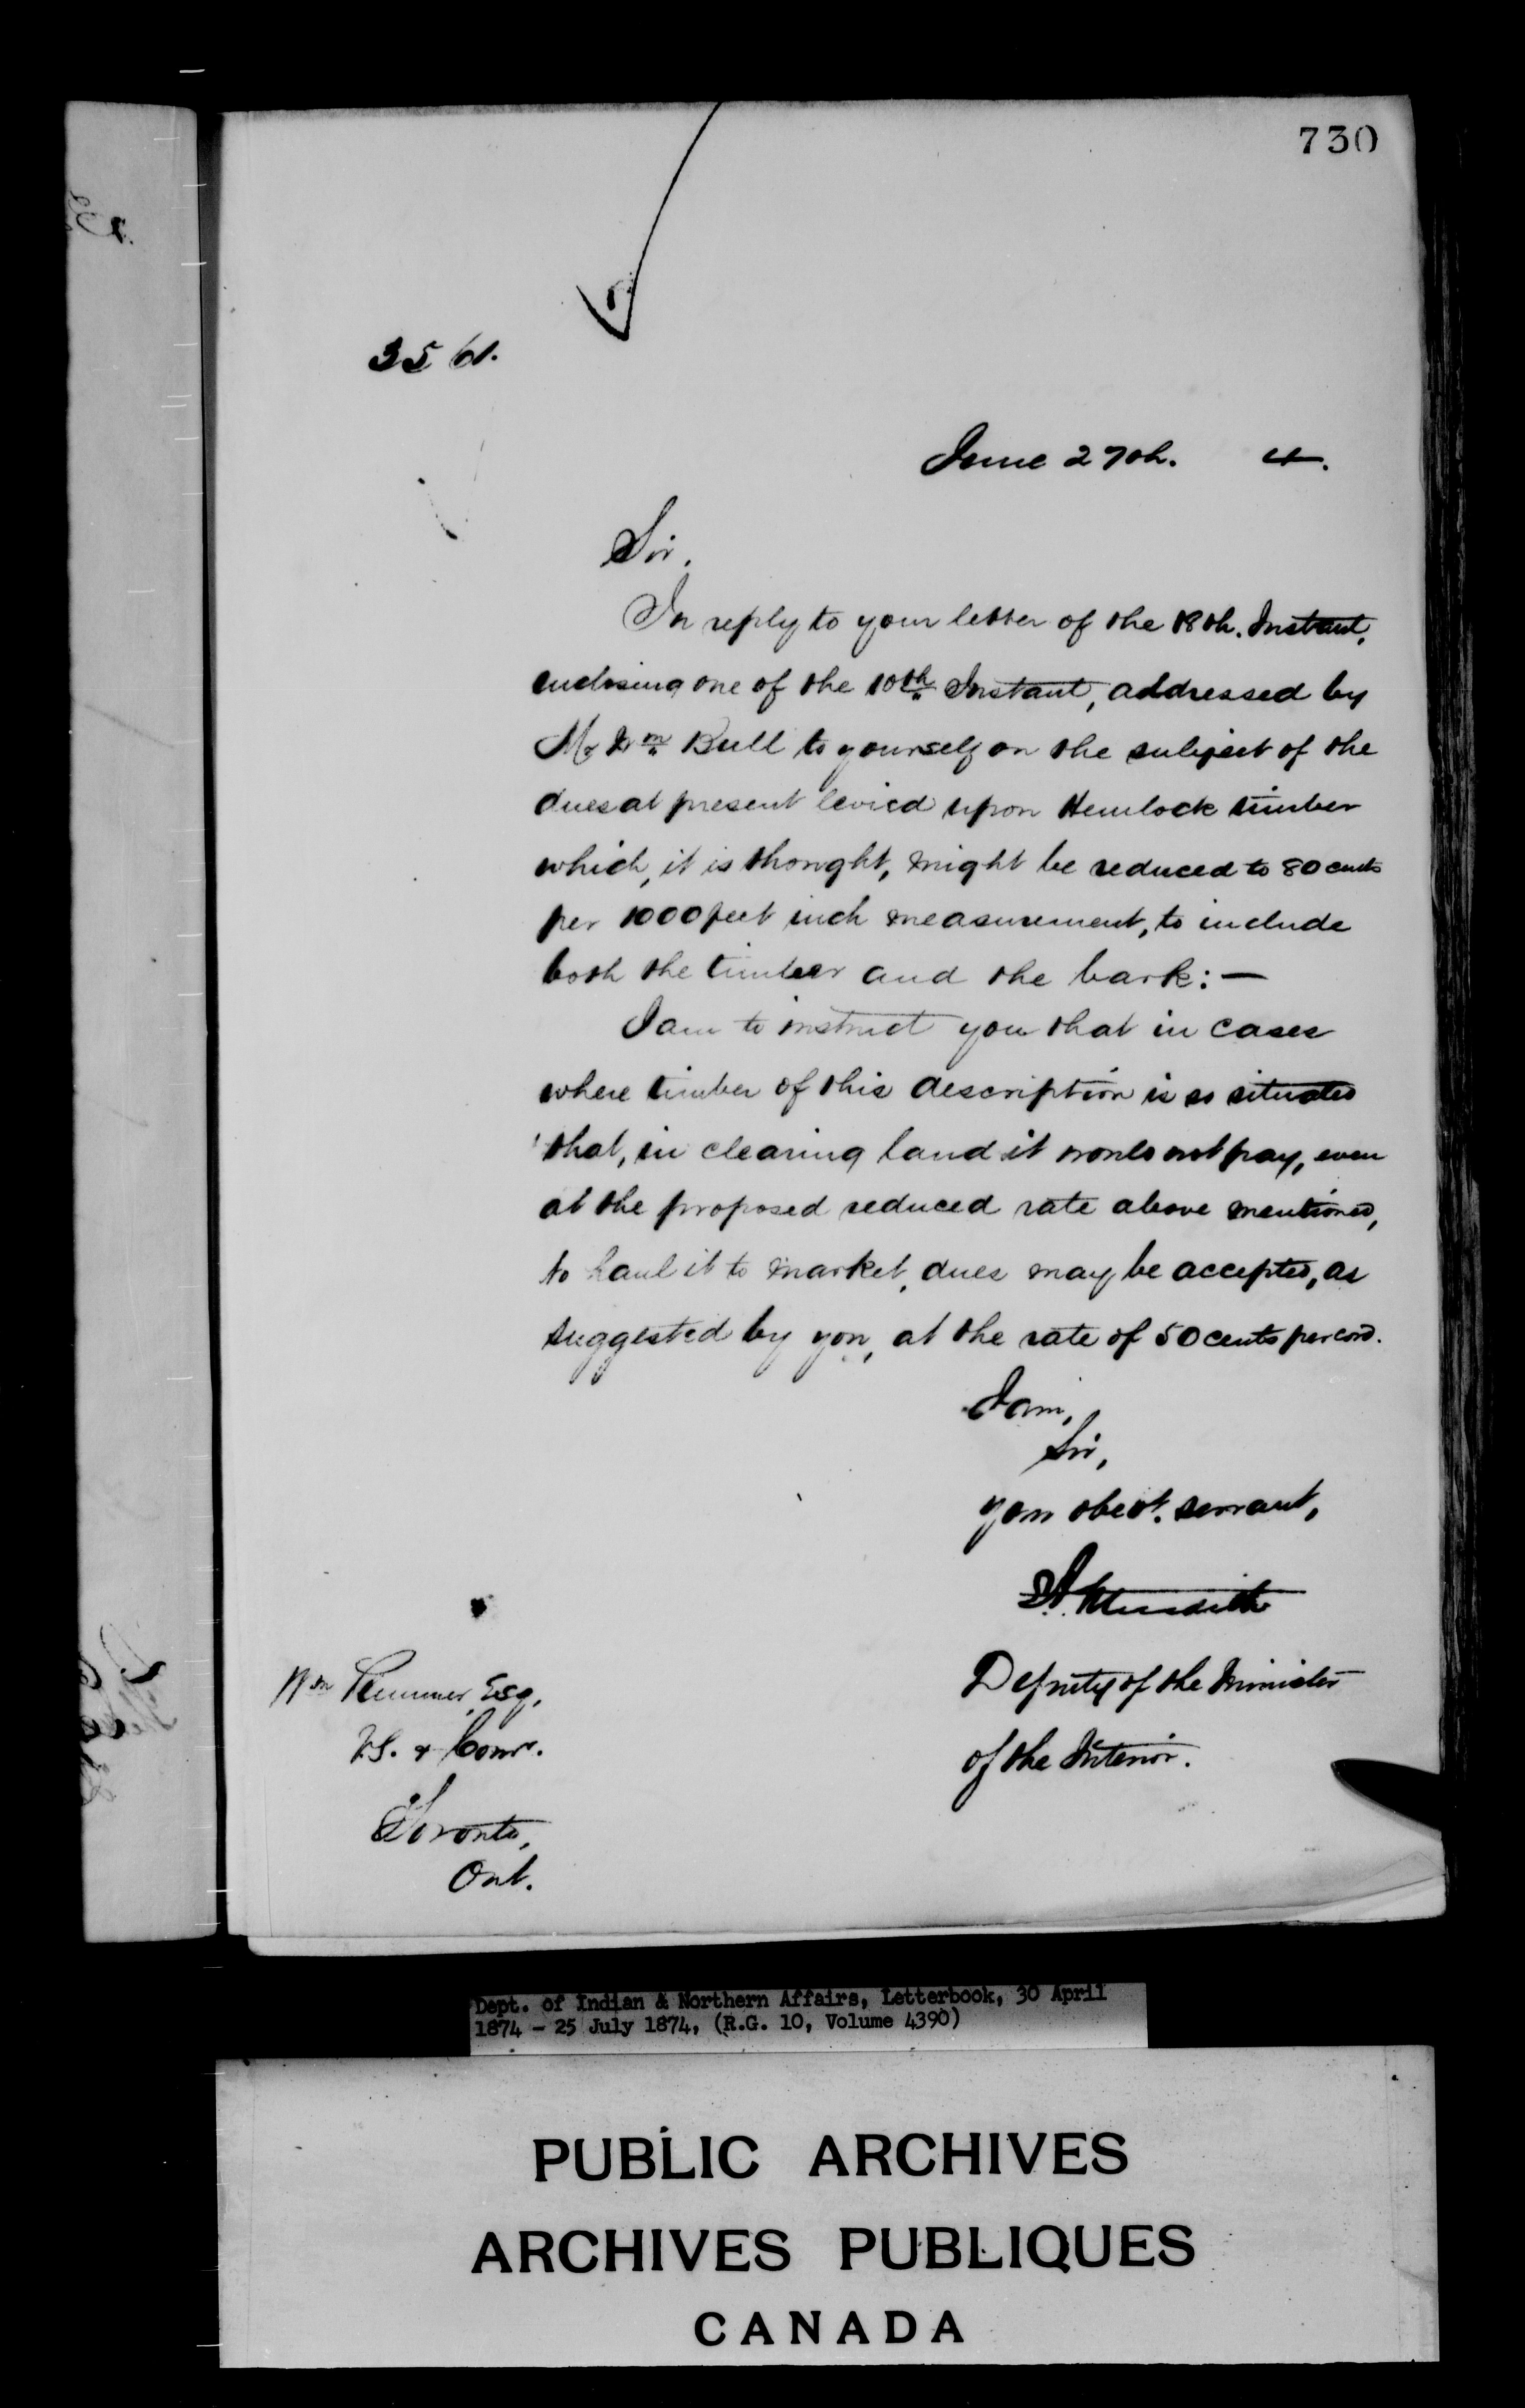 730
3561.
June 27th. 4.
Sir,
In reply to your letter of the 18th. Instant,
enclosing one of the 10th Instant, addressed by
Mr Wm Bull to yourself on the subject of the
dues at present levied upon Hemlock timber
which, it is thought, might be reduced to 80 cents
per 1000 feet inch measurement, to include
both the timber and the bark: —
I am to instruct you that in cases
where timber of this description is so situated
that, in clearing land it would not pay, even
at the proposed reduced rate above mentioned,
to haul it to market, dues may be accepted, as
suggested by you, at the rate of 50 cents per cord.
I am,
Sir,
your obedt. servant,
Meredith
Deputy of the Minister
of the Interior.
Wm Plummer, Esq,
V.S. & Comr.
Toronto,
Ont.
Dept. of Indian & Northern Affairs, Letterbook, 30 April
1874 - 25 July 1874, (R.G. 10, Volume 4390)
PUBLIC ARCHIVES
ARCHIVES PUBLIQUES
CANADA